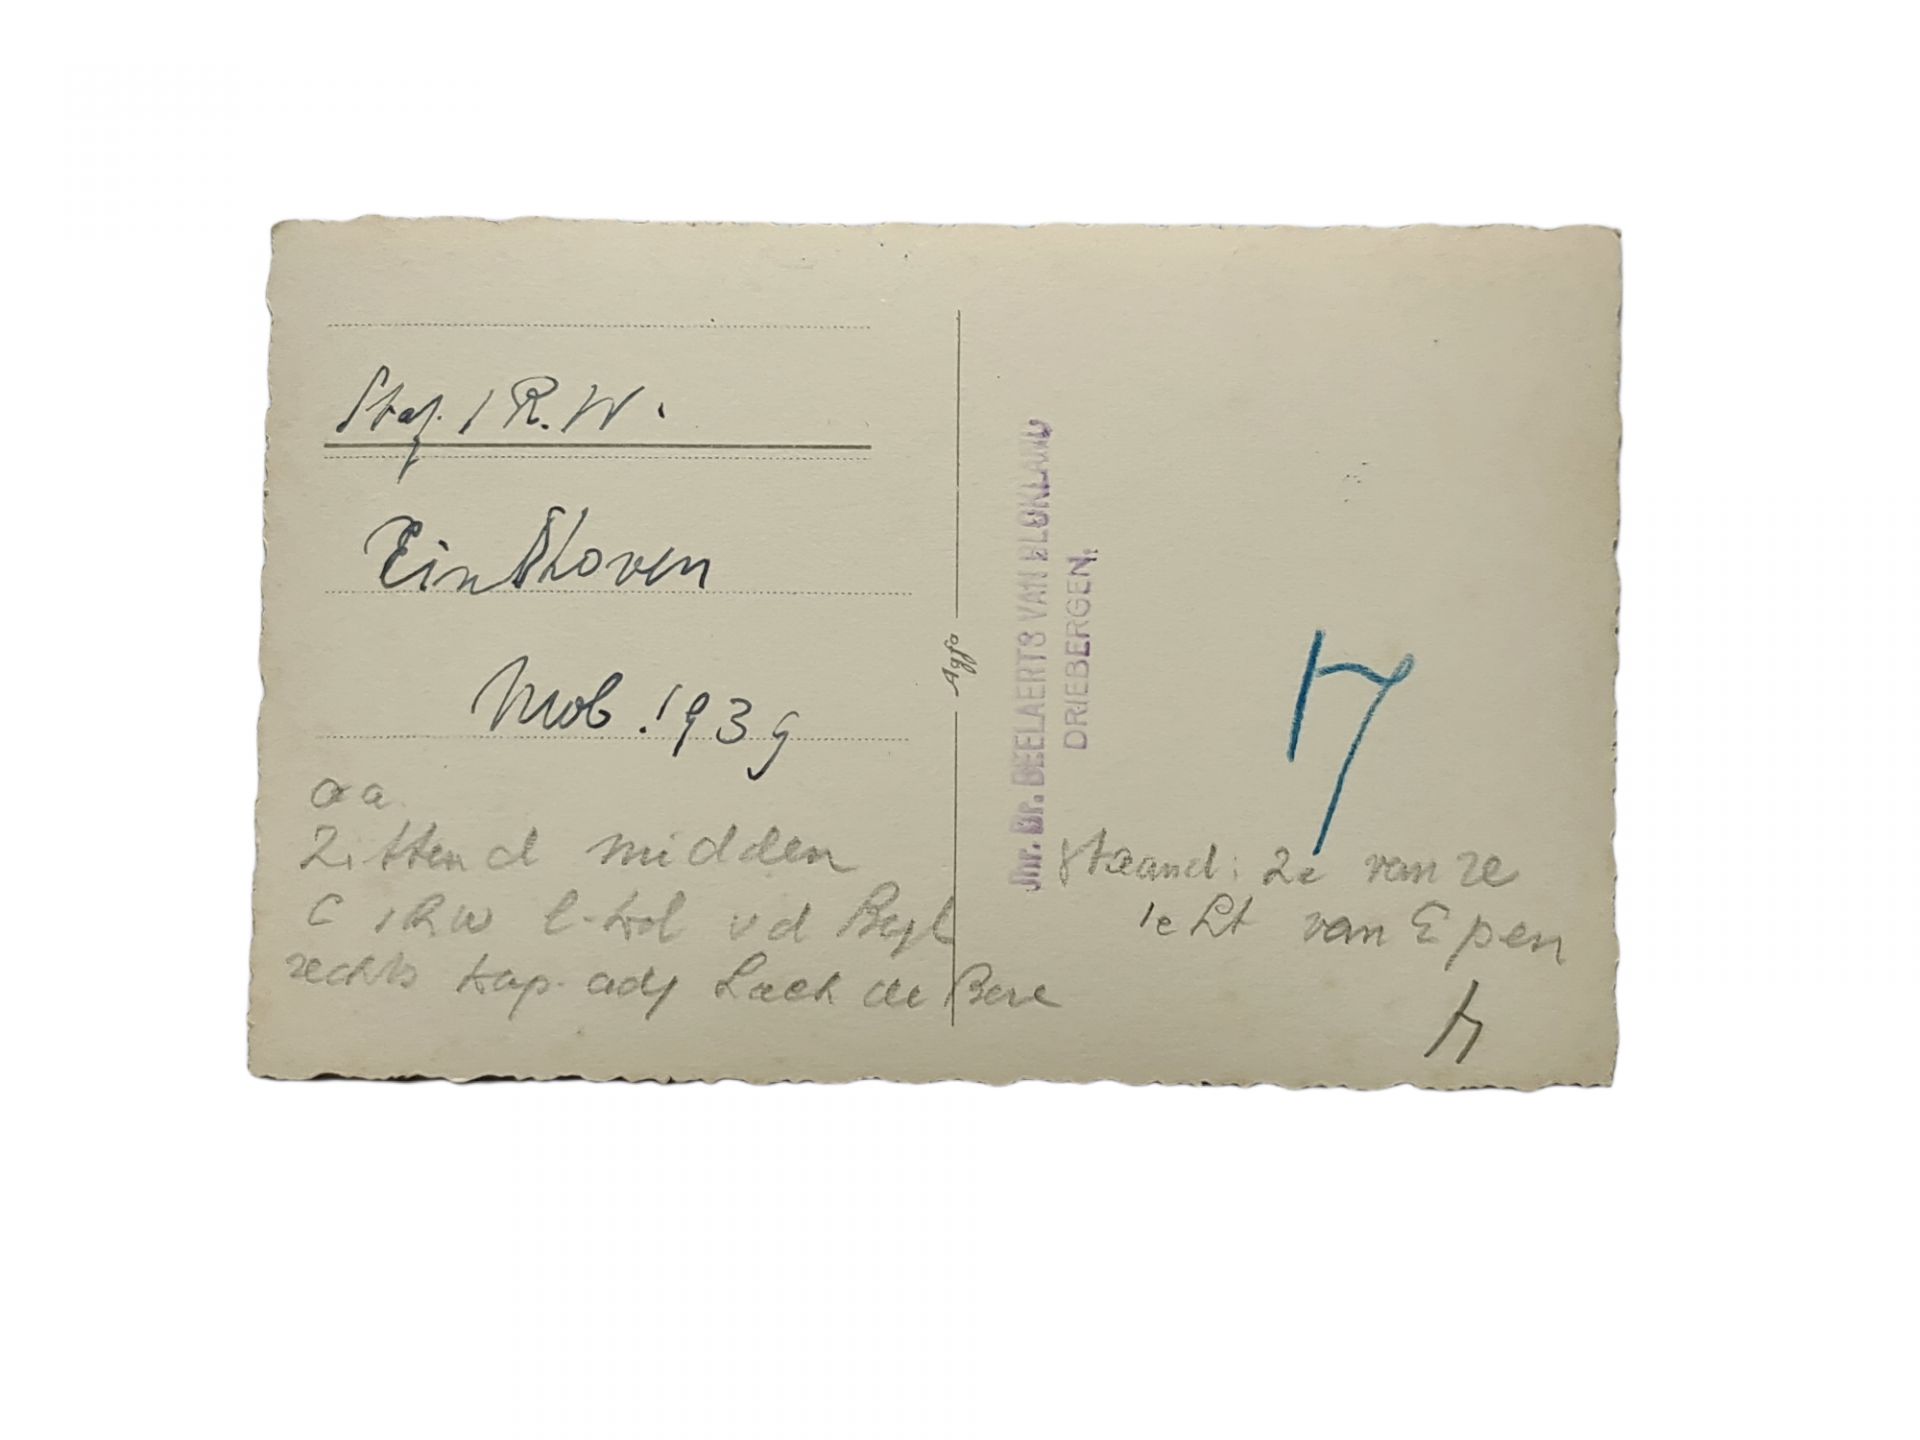 Staf. 1 R.W.
Eindhoven
Mob. 1939
oa
Zittend midden
C 1RW l-kol vd Beyl
rechts kap. adj Lack de Bere
Agfa
Jhr. Dr. BEELAERTS VAN BLOKLAND
DRIEBERGEN.
17
staand: 2e van re
1e Lt van Epen